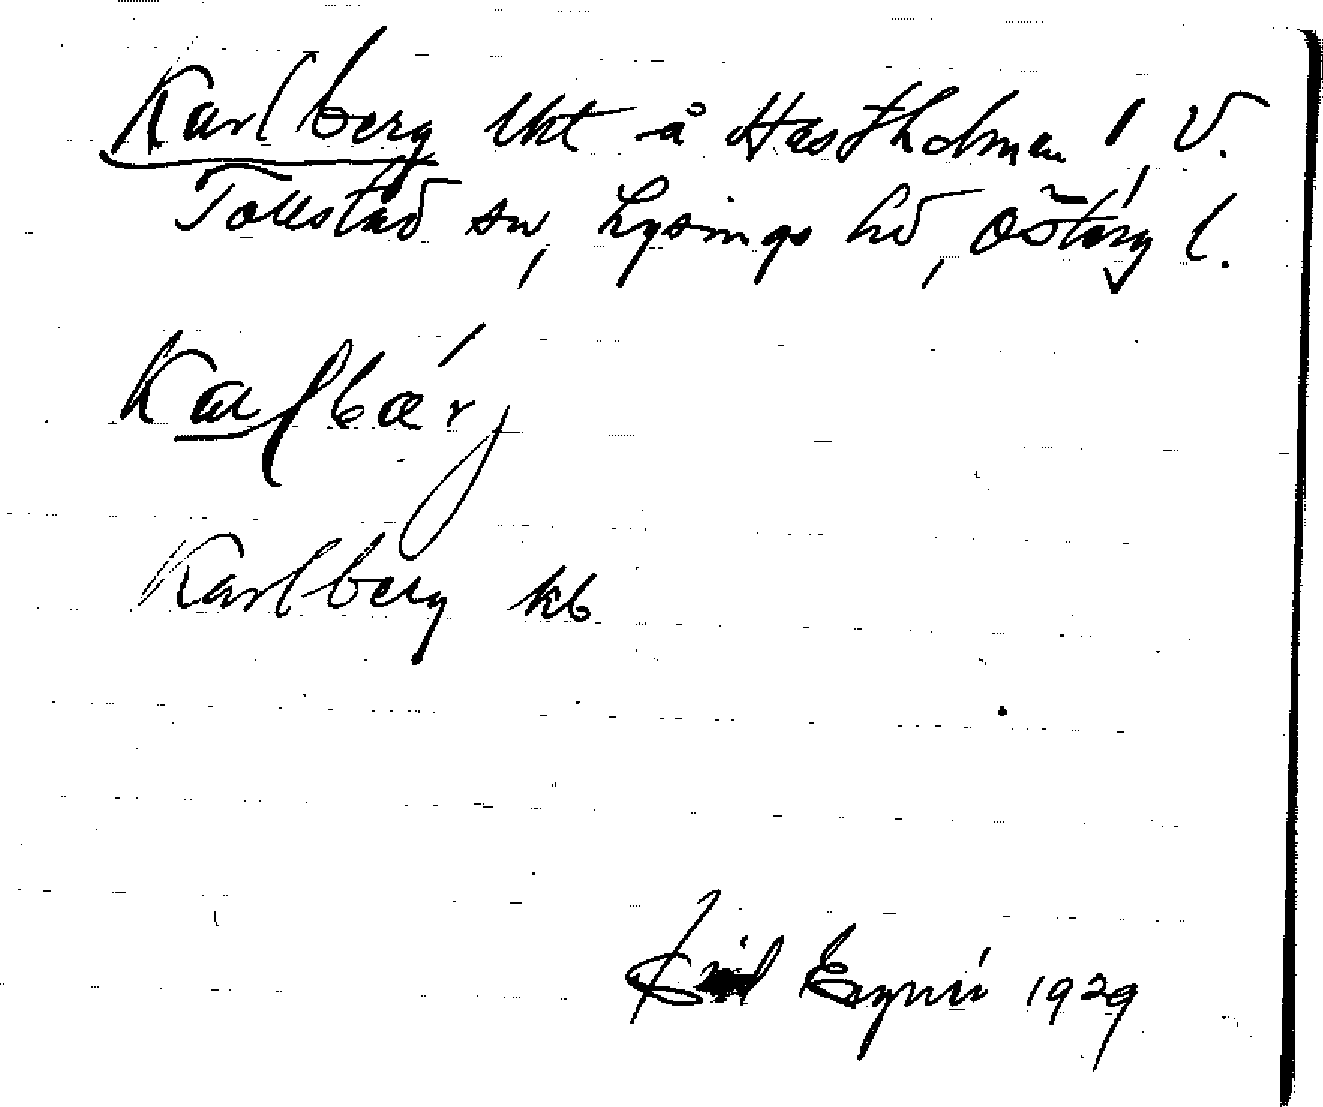 Karlberg lht å Hästholmen i V.
Tollstad sn, Lysings hd, Östérg l.
Kalbærj
Karlberg kb
1929